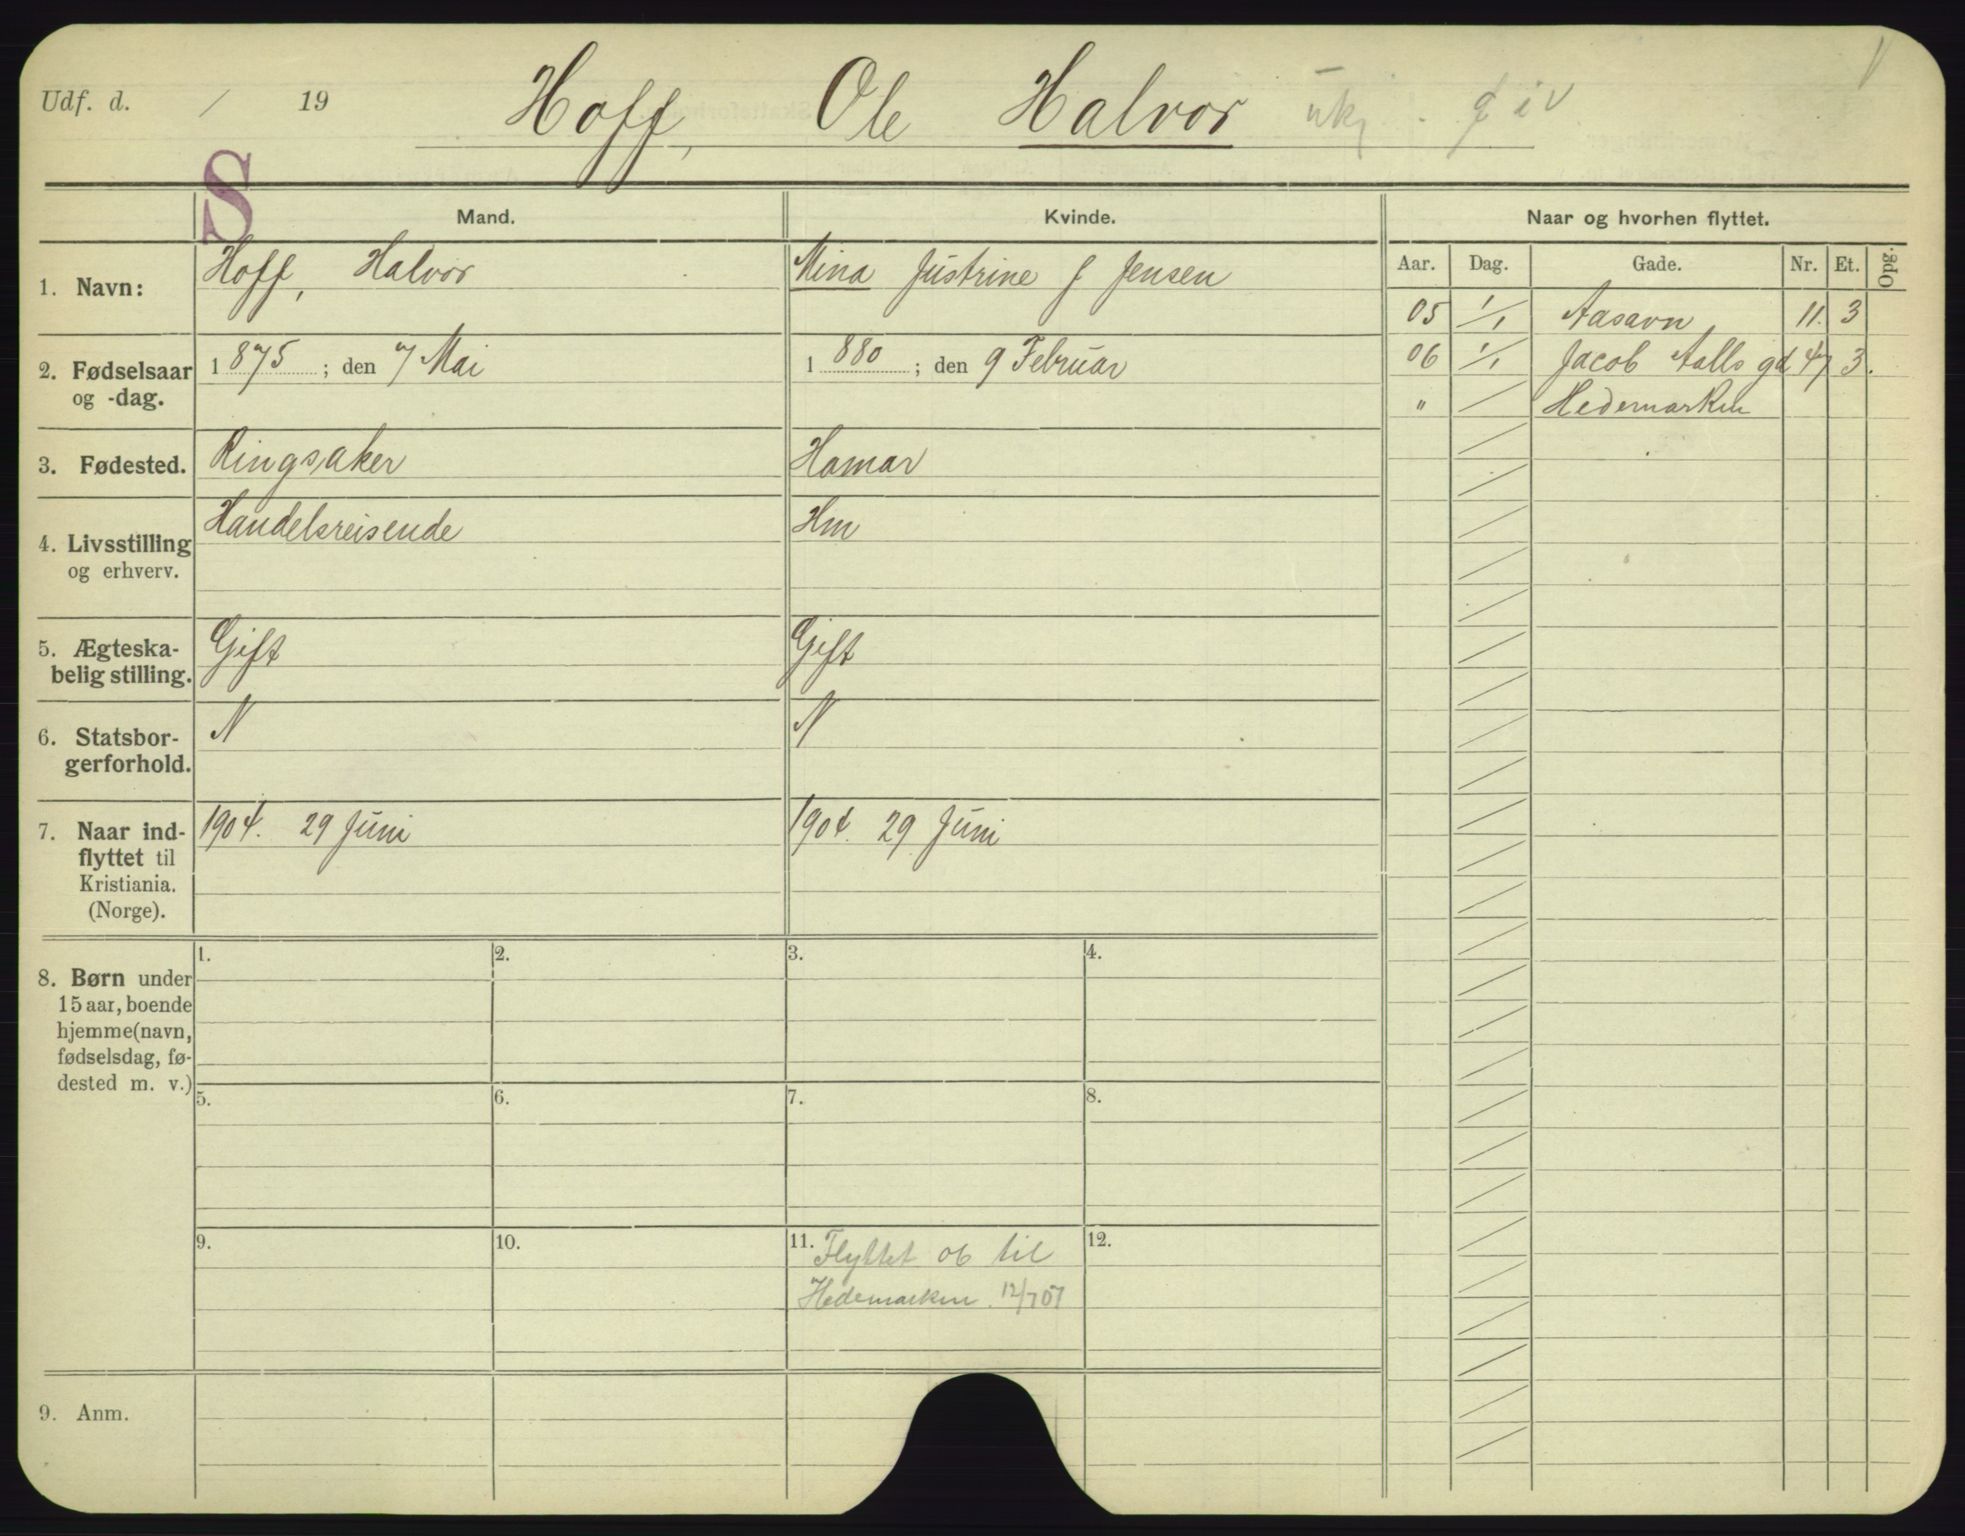 Udf. d. / 19
Hoff, Ole Halvor
S
Mand. Kvinde. Naar og hvorhen flyttet.
Aar. Dag. Gade. Nr. Et. Opg.
1. Navn: Hoff, Halvor Mina Justrine f Jensen
05 1/1 Aasavn 11. 3
2. Fødselsaar og -dag. 1875; den 7 Mai 1880; den 9 Februar
06 1/1 Jacob Aalls gd 47 3.
" / Hedemarken
3. Fødested. Ringsaker Hamar
4. Livsstilling og erhverv. Handelsreisende Hm
5. Ægteska-
belig stilling. Gift Gift
6. Statsbor-
gerforhold. N N
7. Naar ind-
flyttet til
Kristiania.
(Norge). 1904. 29 Juni 1904. 29 Juni
8. Børn under
15 aar, boende
hjemme (navn,
fødselsdag, fø-
dested m. v.)
1. 2. 3. 4.
5. 6. 7. 8.
9. 10. 11. Flyttet 06 til 12.
Hedemarken. 12/7 07
9. Anm.